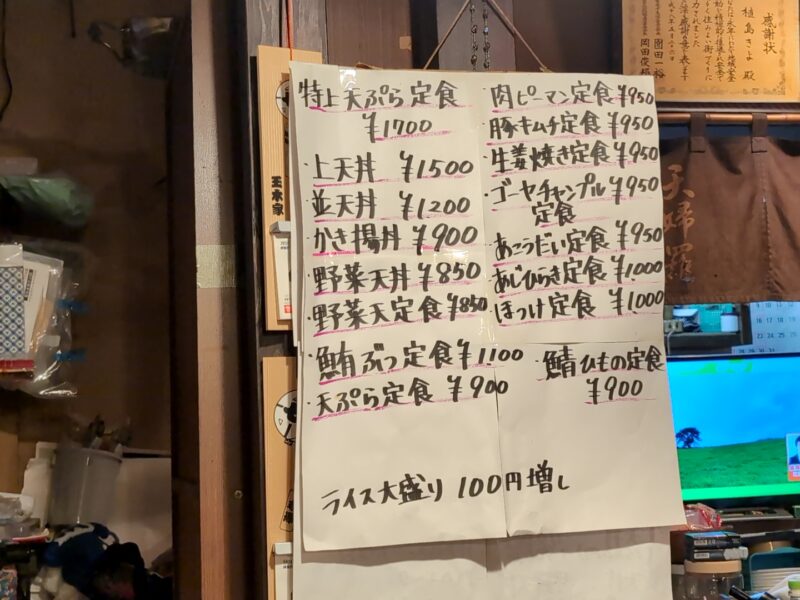 特上天ぷら定食
¥1700
・上天丼 ¥1500
・並天丼 ¥1200
・かき揚丼 ¥900
・野菜天丼 ¥850
・野菜天定食 ¥850
・鮪ぶつ定食 ¥1100
・天ぷら定食 ¥900
・肉ピーマン定食 ¥950
・豚キムチ定食 ¥950
・生姜焼き定食 ¥950
・ゴーヤチャンプル ¥950
定食
・あこうだい定食 ¥950
・あじひらき定食 ¥1000
・ほっけ定食 ¥1000
・鯖ひもの定食
¥900
ライス大盛り 100円増し
感謝状
植島きよ 殿
園田一裕
天婦羅
玉木家